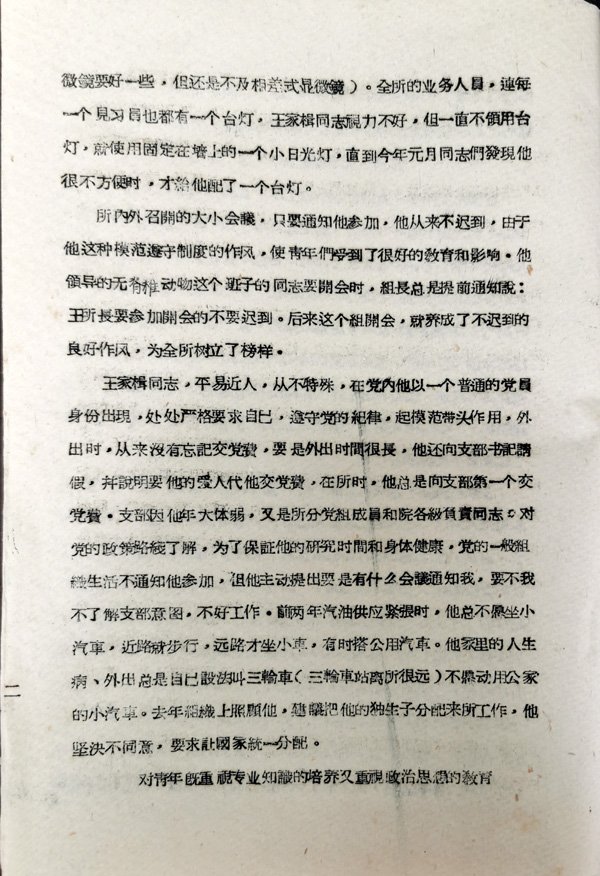 微鏡要好一些，但还是不及相差式显微鏡）。全所的业务人員，連每
一个見习員也都有一个台灯，王家楫同志視力不好，但一直不領用台
灯，就使用固定在墻上的一个小日光灯，直到今年元月同志們發現他
很不方便时，才給他配了一个台灯。
所內外召開的大小会議，只要通知他参加，他从来不迟到，由于
他这种模范遵守制度的作风，使青年們受到了很好的敎育和影响。他
領导的无脊椎动物这个班子的同志要開会时，組長总是提前通知說：
王所長要参加開会的不要迟到。后来这个組開会，就养成了不迟到的
良好作风，为全所树立了榜样。
王家楫同志，平易近人，从不特殊，在党內他以一个普通的党員
身份出現，处处严格要求自己，遵守党的紀律，起模范带头作用，外
出时，从来沒有忘記交党費，要是外出时間很長，他还向支部书記請
假，幷說明要他的爱人代他交党費，在所时，他总是向支部第一个交
党費。支部因他年大体弱，又是所分党組成員和院各級負責同志。对
党的政策路綫了解，为了保証他的研究时間和身体健康，党的一般組
織生活不通知他参加，但他主动提出要是有什么会議通知我，要不我
不了解支部意图，不好工作。前两年汽油供应緊張时，他总不愿坐小
汽車，近路就步行，远路才坐小車，有时搭公用汽車。他家里的人生
病、外出总是自己設法叫三輪車（三輪車站离所很远）不愿动用公家
的小汽車。去年組織上照顾他，建議把他的独生子分配来所工作，他
坚决不同意，要求让國家統一分配。
对青年旣重視专业知識的培养又重視政治思想的敎育
二